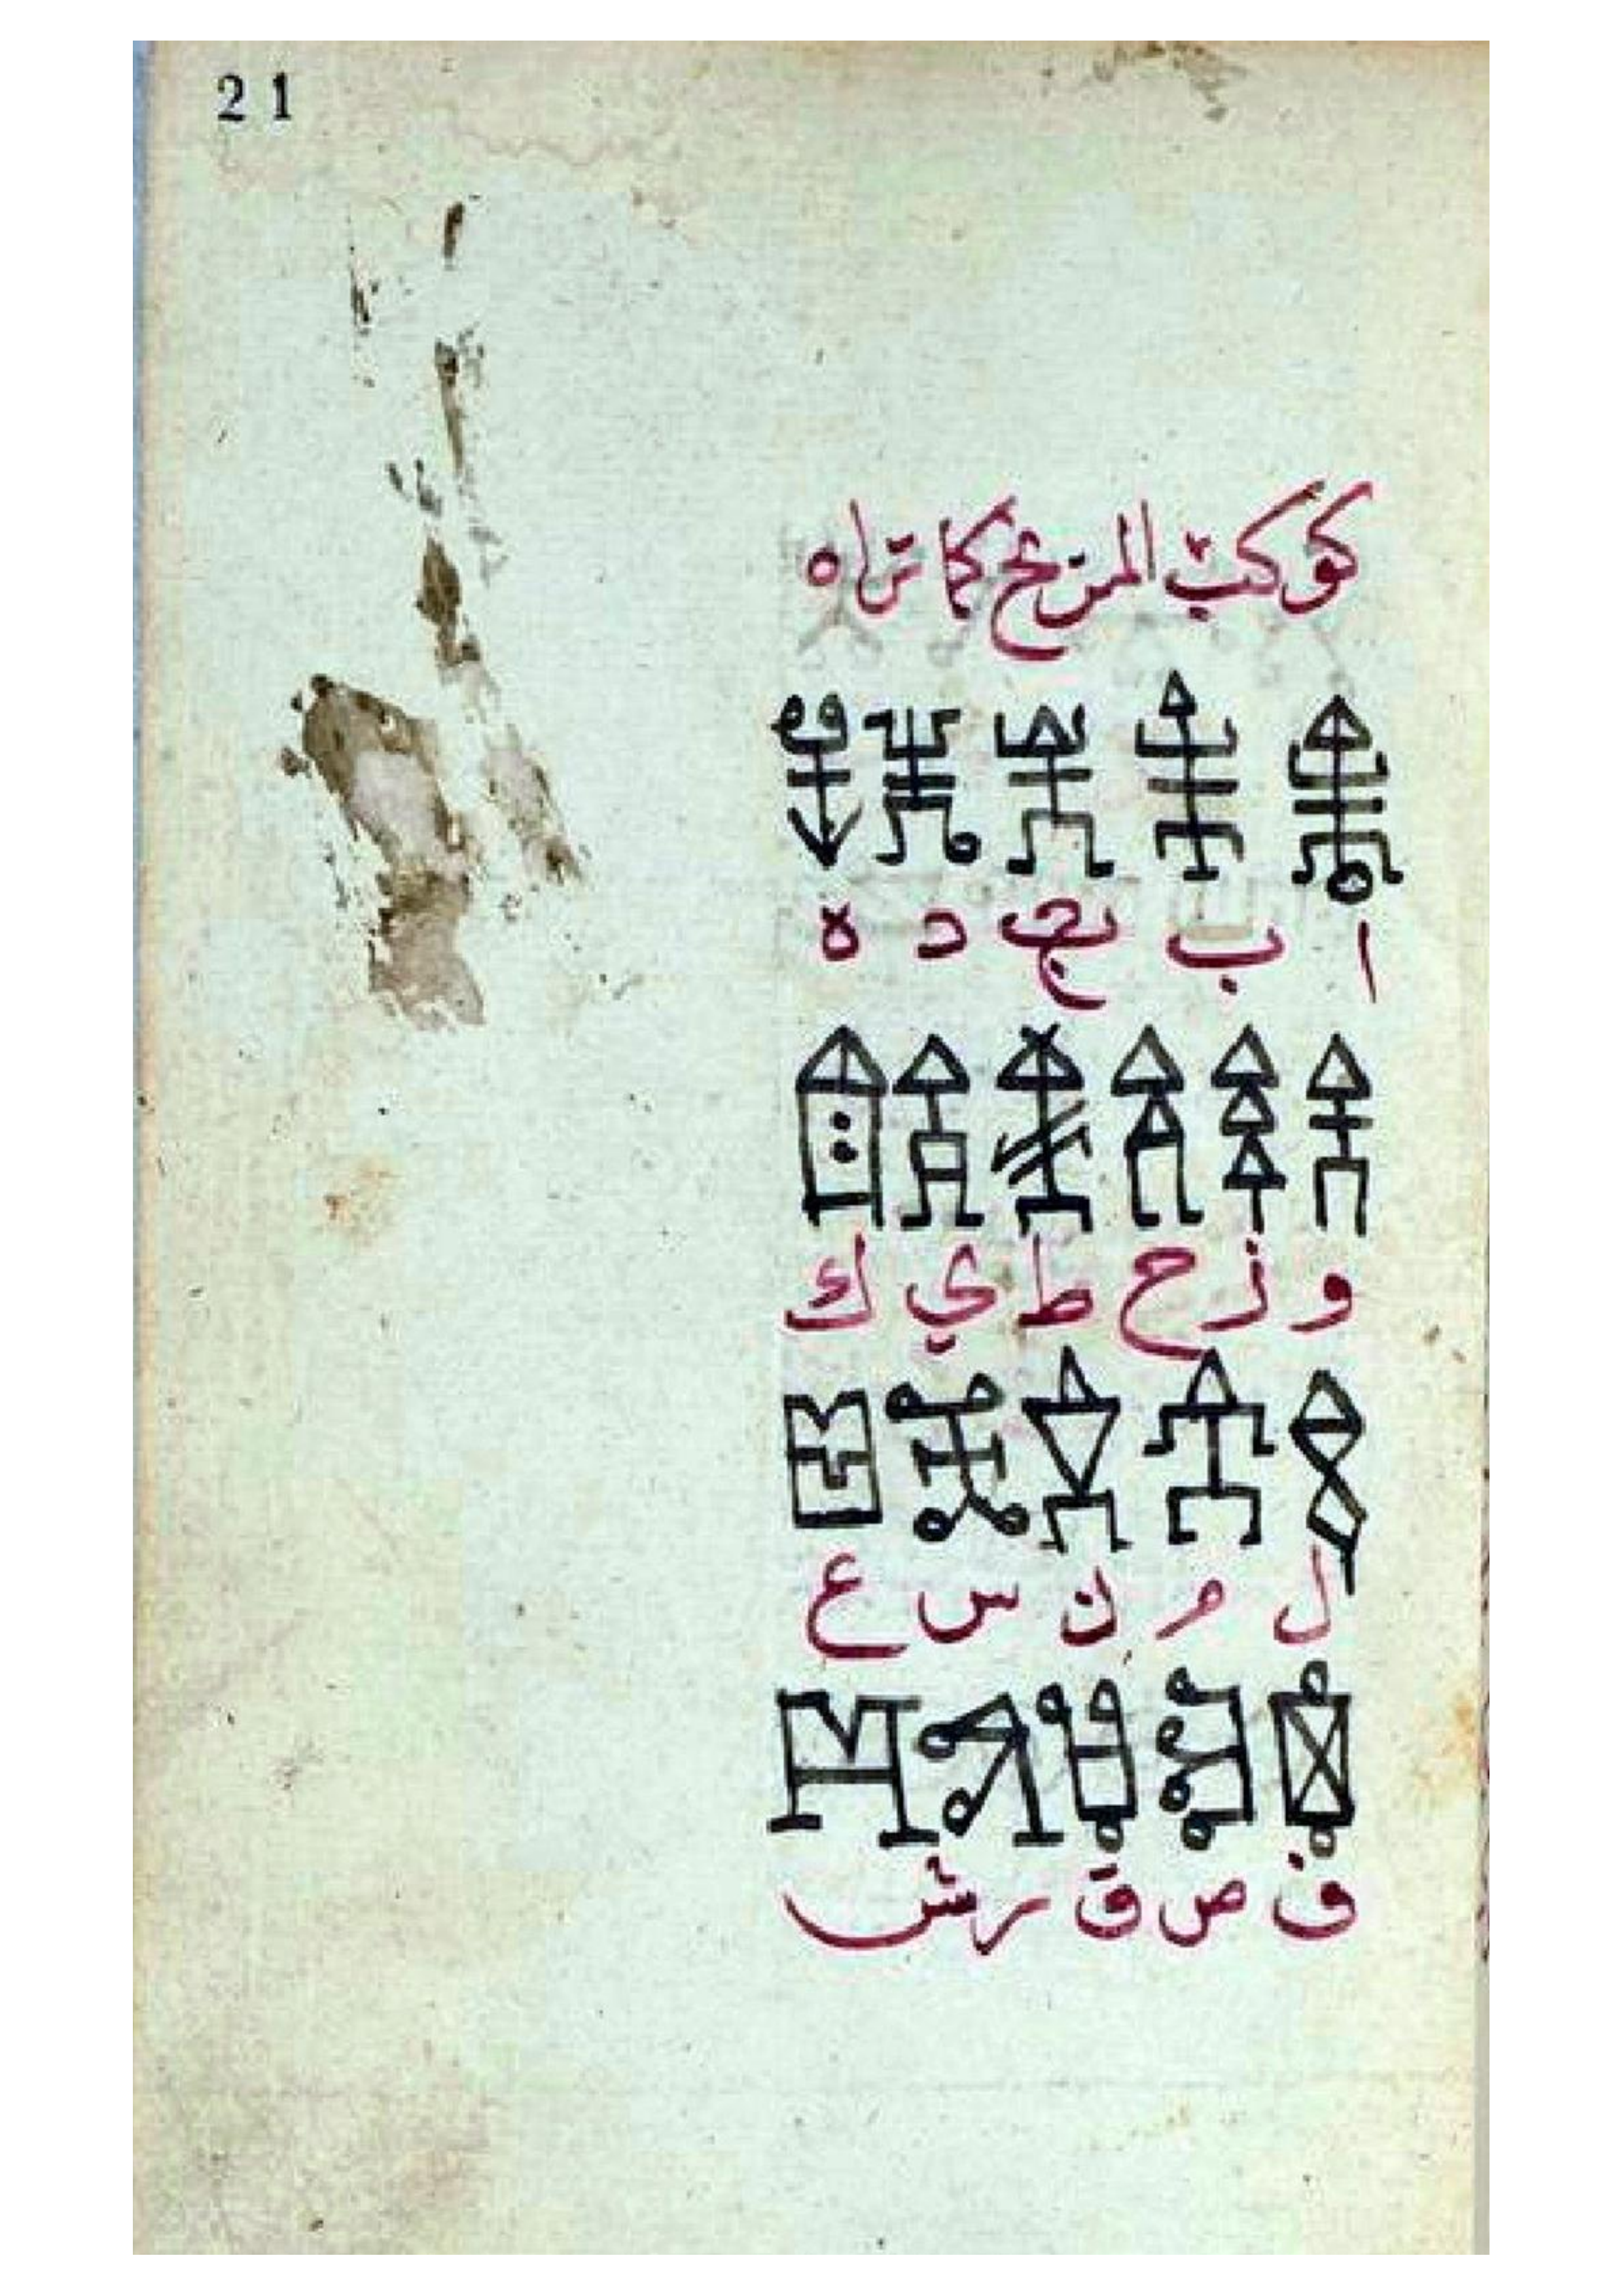 21
كوكب المريخ كما تراه
ا ب ج د ه
و ز ح ط ي ك
ل م ن س ع
ف ص ق ر ش